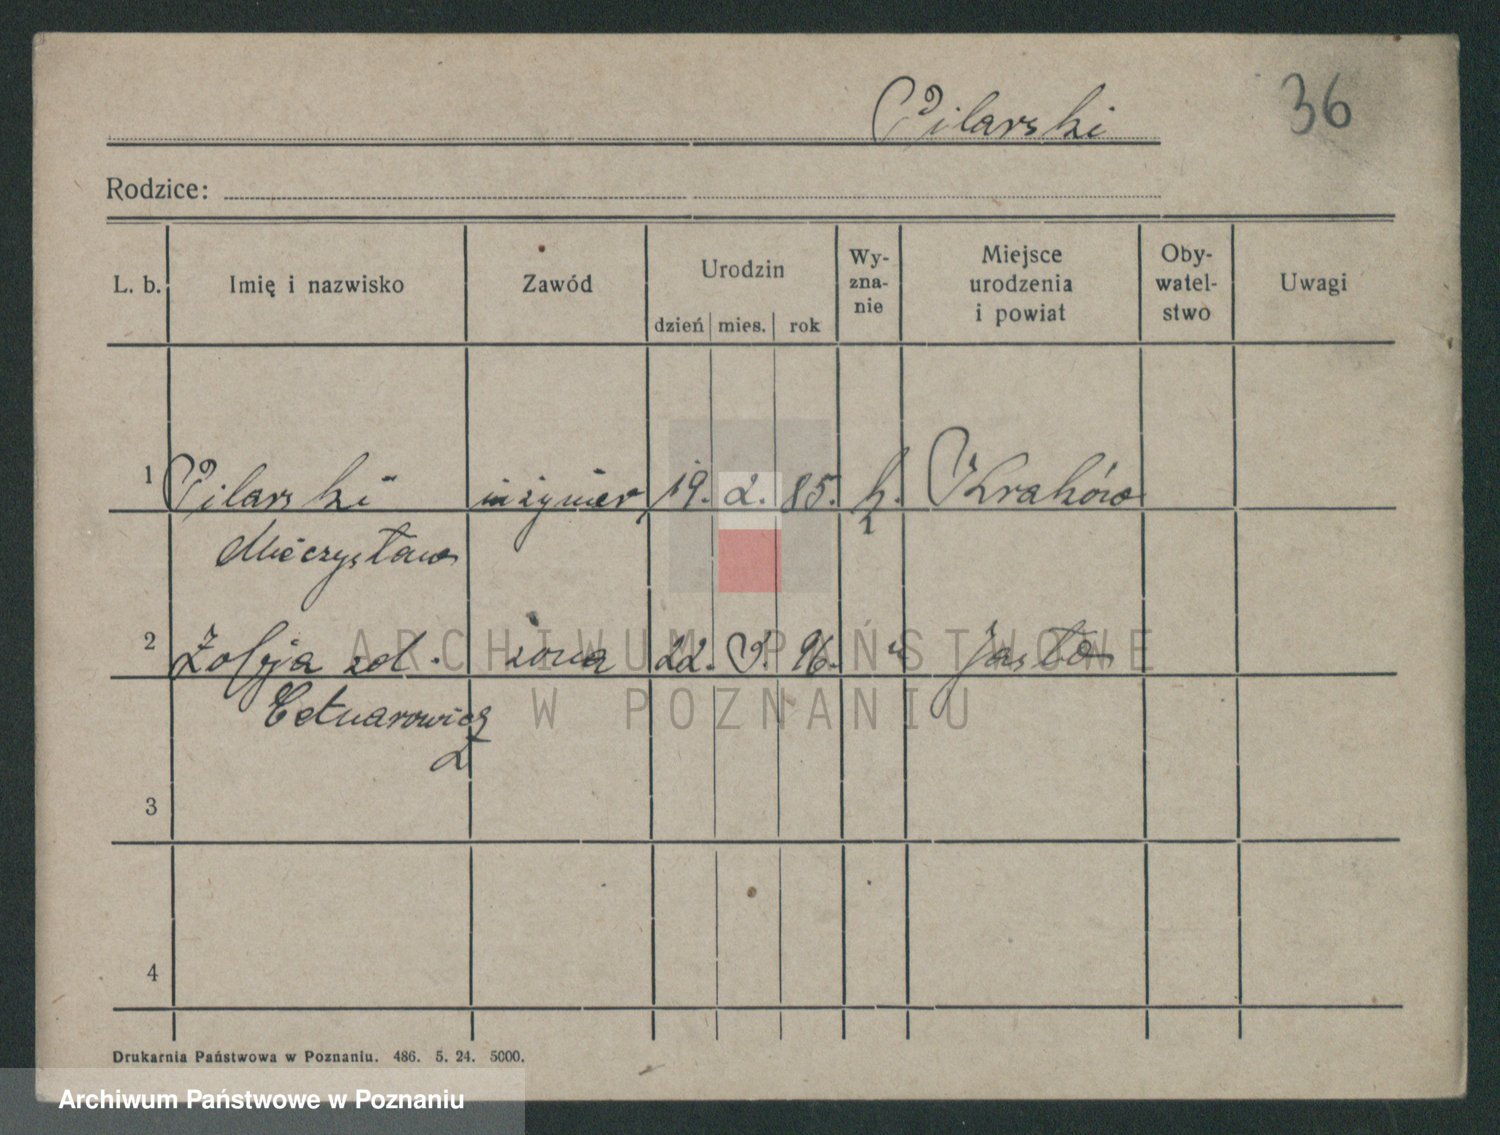 Pilarski
36
Rodzice:
L. b. Imię i nazwisko Zawód Urodzin dzień mies. rok Wy-zna-nie Miejsce urodzenia i powiat Oby-watel-stwo Uwagi
1 Pilarski inżynier 19. 2. 85. k. Kraków
Mieczysław
2 Zofja zd. żona 22. 96. " Jasło
3
4
Drukarnia Państwowa w Poznaniu. 486. 5. 24. 5000.
ARCHIWUM PAŃSTWOWE
W POZNANIU
Archiwum Państwowe w Poznaniu